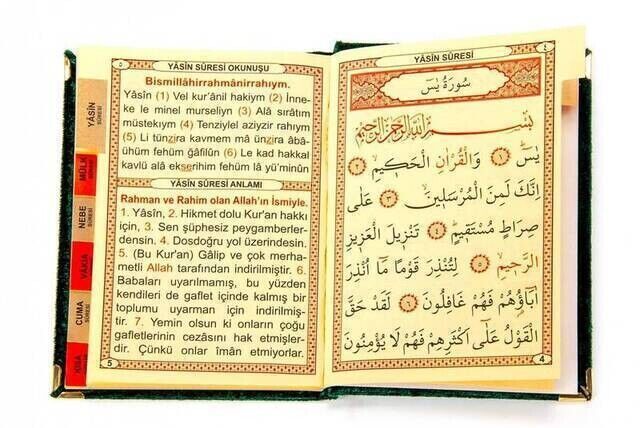 YÂSİN SÛRESİ OKUNUŞU
٥
Bismillâhirrahmânirrahıym.
Yâsîn (1) Vel kur'ânil hakiym (2) İnne-
ke le minel murseliyn (3) Alâ sırâtım
müstekıym (4) Tenziylel aziyzir rahıym
(5) Li tünzira kavmem mâ ünzira âbâ-
ühüm fehüm ğâfilûn (6) Le kad hakkal
kavlü alâ ekserihim fehüm lâ yü'minûn
YÂSİN SÛRESİ ANLAMI
Rahman ve Rahim olan Allah'ın İsmiyle.
1. Yâsîn, 2. Hikmet dolu Kur'an hakkı
için, 3. Sen şüphesiz peygamberler-
densin. 4. Dosdoğru yol üzerindesin.
5. (Bu Kur'an) Gâlip ve çok merha-
metli Allah tarafından indirilmiştir. 6.
Babaları uyarılmamış, bu yüzden
kendileri de gaflet içinde kalmış bir
toplumu uyarman için indirilmiş-
tir. 7. Yemin olsun ki onların çoğu
gafletlerinin cezasını hak etmişler-
dir. Çünkü onlar îmân etmiyorlar.
5
YÂSİN
SÛRESİ
MÜLK
SÛRESİ
NEBE
SÛRESİ
VÂKIA
CUMA
SÛRESİ
YÂSİN SÛRESİ
٤
سُورَةُ يٰسٓ
بِسْمِ اللّٰهِ الرَّحْمٰنِ الرَّحِيمِ
يٰسٓ ﴿١﴾ وَالْقُرْاٰنِ الْحَكِيمِ ﴿٢﴾
اِنَّكَ لَمِنَ الْمُرْسَلِينَ ﴿٣﴾ عَلٰى
صِرَاطٍ مُسْتَقِيمٍ ﴿٤﴾ تَنْزِيلَ الْعَزِيزِ
الرَّحِيمِ ﴿٥﴾ لِتُنْذِرَ قَوْمًا مَٓا اُنْذِرَ
اٰبَٓاؤُ۬هُمْ فَهُمْ غَافِلُونَ ﴿٦﴾ لَقَدْ حَقَّ
الْقَوْلُ عَلٰٓى اَكْثَرِهِمْ فَهُمْ لَا يُؤْمِنُونَ
4